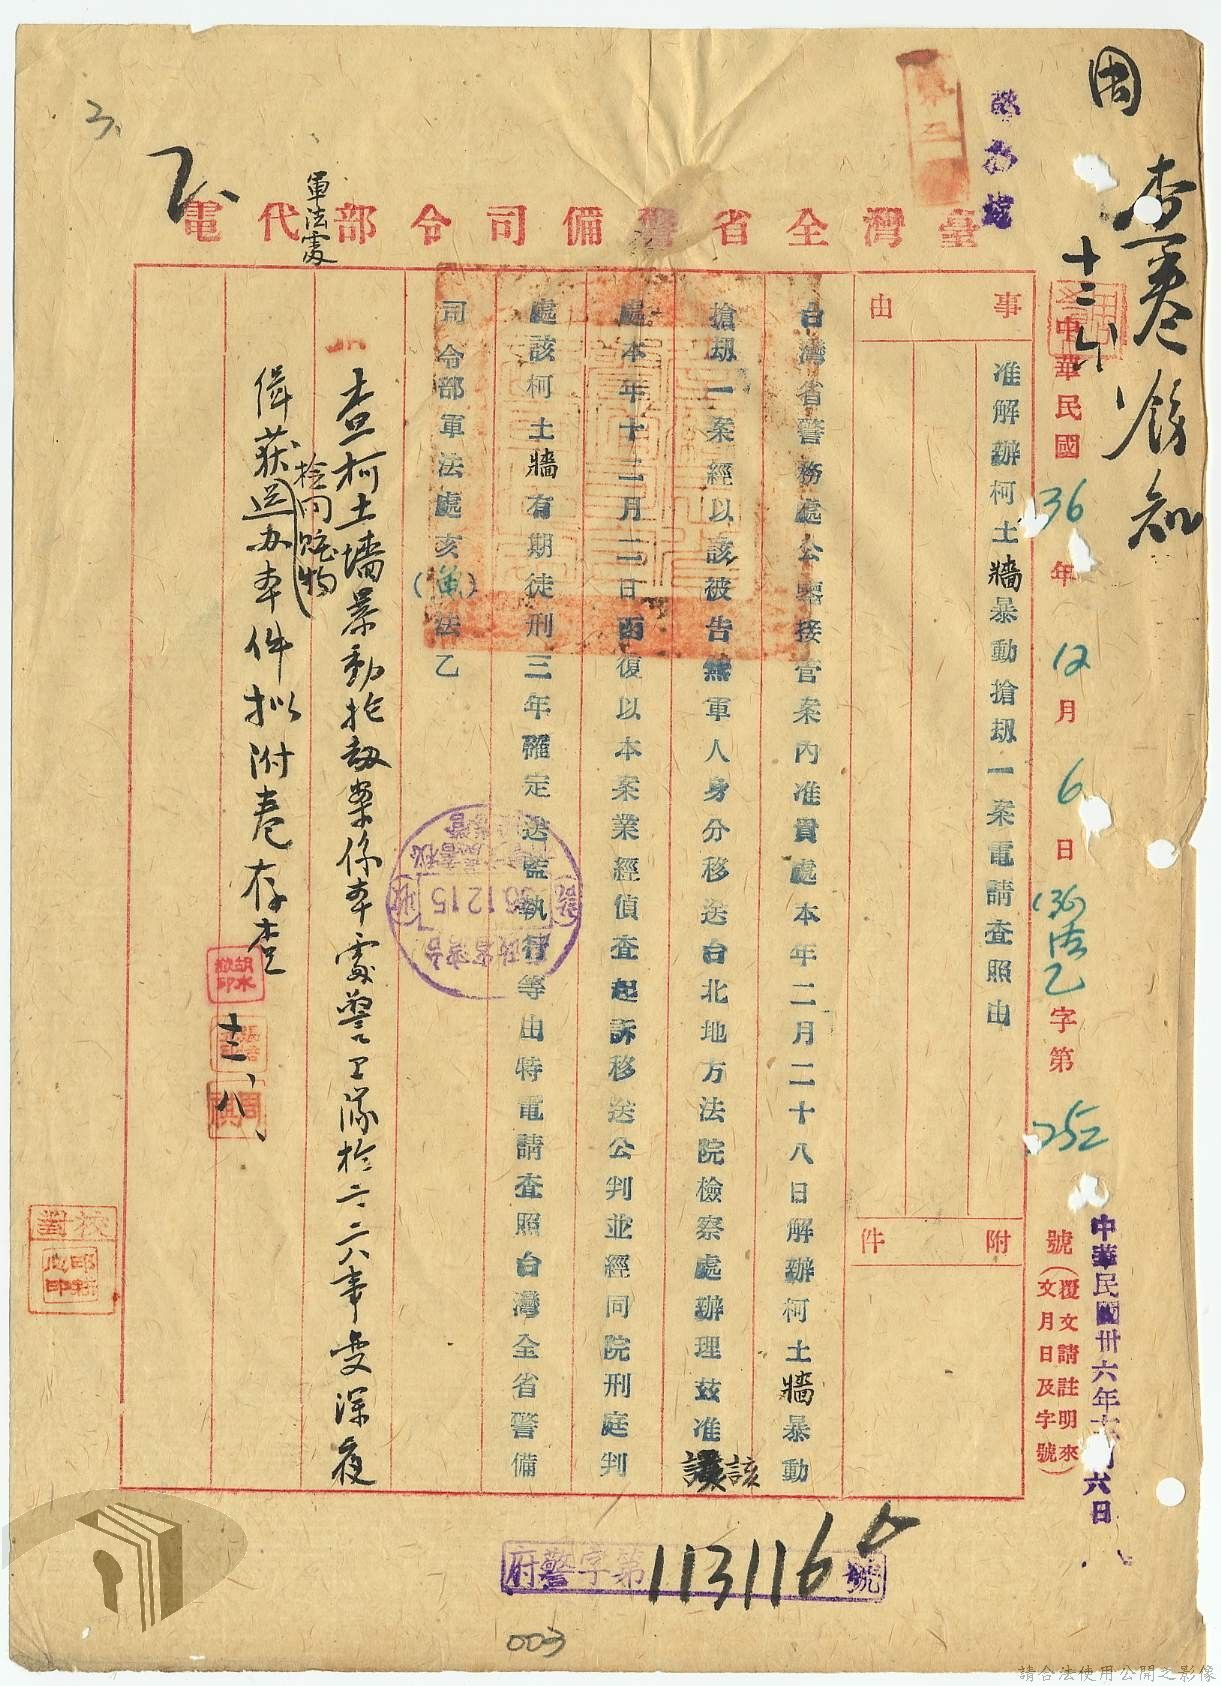 臺灣全省警備司令部代電
軍法處
中華民國36年12月6日(36)法乙字第752號(覆文請註明來文月日及字號)
中華民國卅六年 月六日
查卷後知
十二、八
事由
准解辦柯土牆暴動搶劫一案電請查照由
附件
台灣省警務處公鑒接管案內准貴處本年二月二十八日解辦柯土牆暴動
搶劫一案經以該被告無軍人身分移送台北地方法院檢察處辦理茲准該
處本年十二月二日函復以本案業經偵查起訴移送公判並經同院刑庭判
處該柯土牆有期徒刑三年確定送監執行等由特電請查照台灣全省警備
司令部軍法處亥(軍)法乙
查柯土墻暴動搶劫案係本處警衛隊於二二八事變深夜
俱獲送办本件拟附卷存查
檢同賍物
十二、八、
36.12.15
校對
府警字第113116號
乙、
3、
003
請合法使用公開之影像